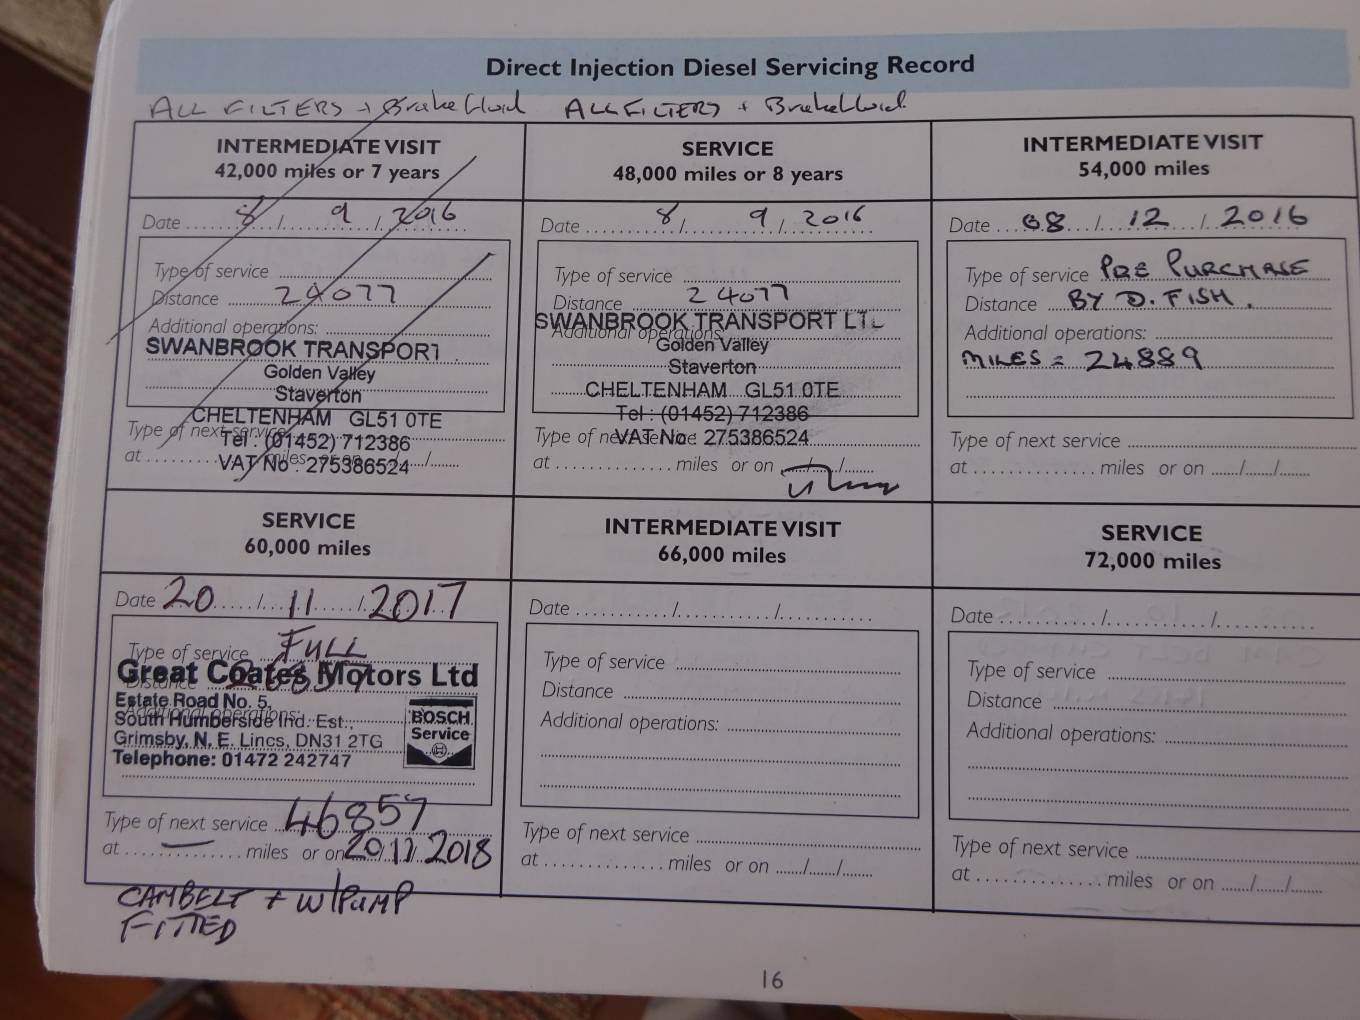 Direct Injection Diesel Servicing Record
ALL FILTERS + Brake fluid
ALL FILTERS + Brake fluid
INTERMEDIATE VISIT
42,000 miles or 7 years
Date 8 / 9 / 2016
Type of service
Distance 24077
Additional operations:
SWANBROOK TRANSPORT
Golden Valley
Staverton
CHELTENHAM GL51 0TE
Type of next service
Tel : (01452) 712386
at miles or on / /
VAT No : 275386524
SERVICE
48,000 miles or 8 years
Date 8 / 9 / 2016
Type of service
Distance 24077
SWANBROOK TRANSPORT LTL
Additional operations:
Golden Valley
Staverton
CHELTENHAM GL51 0TE
Tel : (01452) 712386
Type of next service
VAT No : 275386524
at miles or on / /
INTERMEDIATE VISIT
54,000 miles
Date 08 / 12 / 2016
Type of service PRE PURCHASE
Distance BY D. FISH.
Additional operations:
MILES = 24889
Type of next service
at miles or on / /
SERVICE
60,000 miles
Date 20 / 11 / 2017
Type of service FULL
Great Coates Motors Ltd
Distance
Estate Road No. 5,
Additional operations:
South Humberside Ind. Est.,
Grimsby, N. E. Lincs, DN31 2TG
Telephone: 01472 242747
BOSCH
Service
Type of next service 46857
at — miles or on 20/11/2018
CAMBELT + W/PUMP
FITTED
INTERMEDIATE VISIT
66,000 miles
Date / /
Type of service
Distance
Additional operations:
Type of next service
at miles or on / /
SERVICE
72,000 miles
Date / /
Type of service
Distance
Additional operations:
Type of next service
at miles or on / /
16